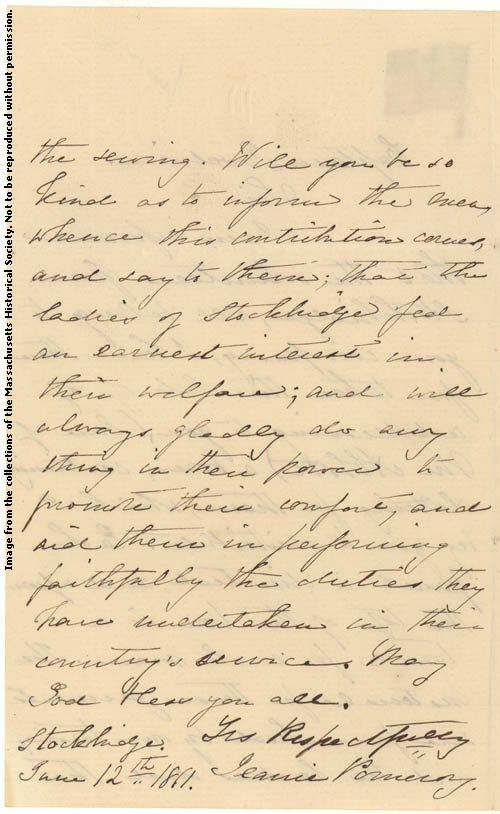 Image from the collections of the Massachusetts Historical Society. Not to be reproduced without permission.
the sewing. Will you be so
kind as to inform the men,
whence this contribution comes,
and say to them; that the
ladies of Stockbridge feel
an earnest interest in
their welfare; and will
always gladly do any
thing in their power to
promote their comfort, and
aid them in performing
faithfully the duties they
have undertaken in their
country's service. May
God bless you all.
Yrs Respectfully
Stockbridge. Jeanie Pomeroy.
June 12th 1861.